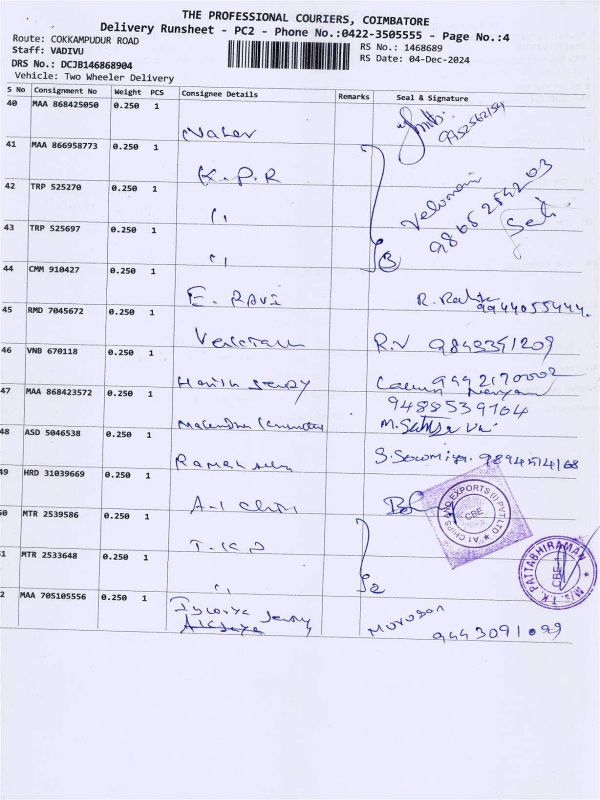 THE PROFESSIONAL COURIERS, COIMBATORE
Delivery Runsheet - PC2 - Phone No.:0422-3505555 - Page No.:4
Route: COKKAMPUDUR ROAD
Staff: VADIVU
RS No.: 1468689
DRS No.: DCJB146868904
RS Date: 04-Dec-2024
Vehicle: Two Wheeler Delivery
S No Consignment No Weight PCS Consignee Details Remarks Seal & Signature
40 MAA 868425050 0.250 1
9952562154
41 MAA 866958773 0.250 1 K.P.R
42 TRP 525270 0.250 1 "
43 TRP 525697 0.250 1 "
3
44 CMM 910427 0.250 1 E. RAVI
9944055444.
45 RMD 7045672 0.250 1 R.V 9843341209
46 VNB 670118 0.250 1
9442170002
47 MAA 868423572 0.250 1 9488539764
48 ASD 5046538 0.250 1 S. Sowmiya.
49 HRD 31039669 0.250 1 A.1 Chips
A1 CHIPS AND EXPORTS (I) PVT LTD
CBE
50 MTR 2539586 0.250 1 T.K.P
51 MTR 2533648 0.250 1 "
2
M/S. T.K. PATTABHIRAMAN
CBE
2 MAA 705105556 0.250 1
Murugan
9443091099